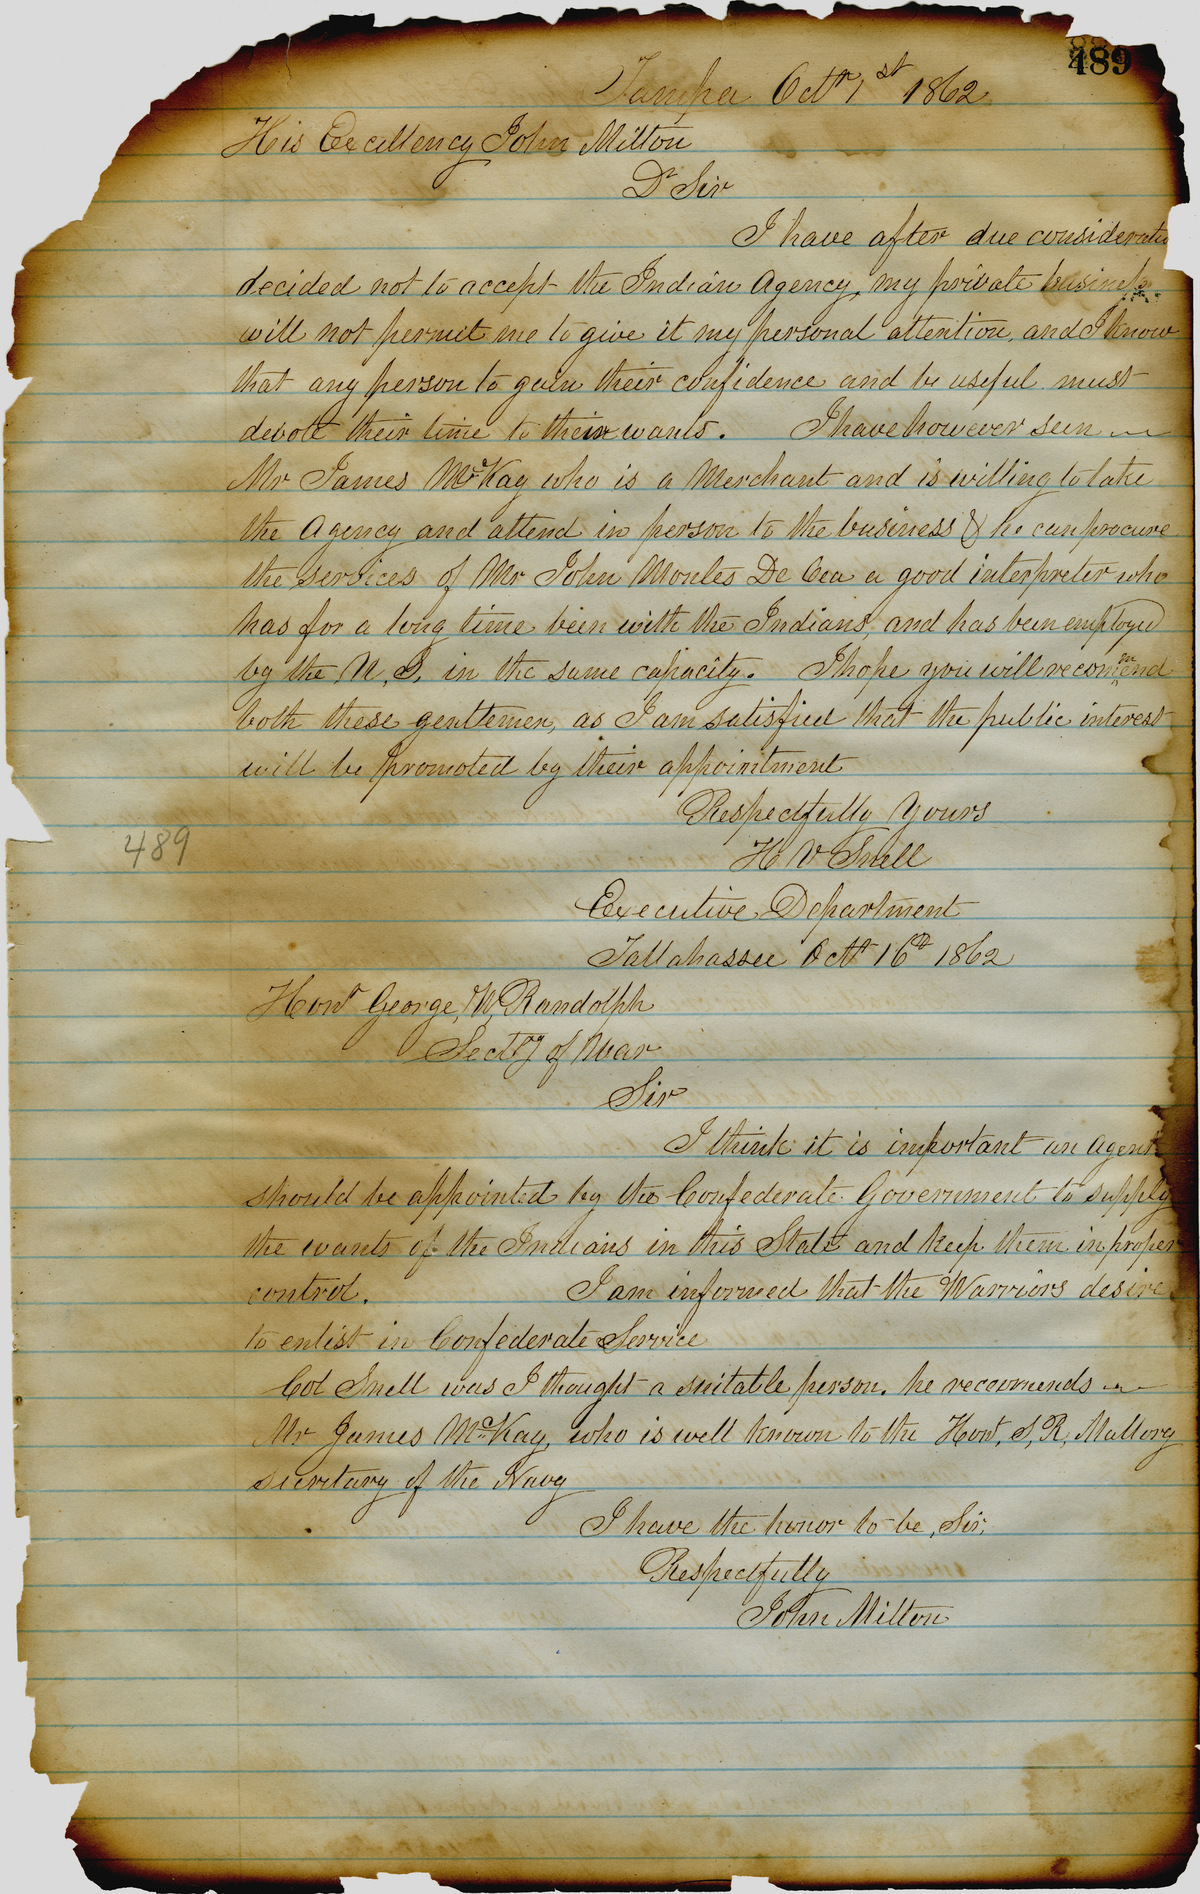 489
Tampa Octr 1st 1862
His Excellency John Milton
Dr Sir
I have after due consideratio
decided not to accept the Indian Agency, my private business
will not permit me to give it my personal attention, and I know
that any person to gain their confidence and be useful must
devote their time to their wants. I have however seen
Mr James McKay who is a Merchant and is willing to take
the Agency and attend in person to the business & he can procure
the services of Mr John Montes De Oca a good interpreter who
has for a long time been with the Indians, and has been employed
by the U, S, in the same capacity. I hope you will recommend
both these gentlemen, as I am satisfied that the public interest
will be promoted by their appointment
Respectfully Yours
H V Snell
489
Executive Department
Tallahassee Octr 16th 1862
Honr George, W, Randolph
Sectry of War
Sir
I think it is important an Agent
should be appointed by the Confederate Government to supply
the wants of the Indians in this State and keep them in proper
control. I am informed that the Warriors desire
to enlist in Confederate Service
Col Snell was I thought a suitable person. he reccomends
Mr James McKay, who is well known to the Hont, S, R, Mallory
secretary of the Navy
I have the honor to be, Sir,
Respectfully
John Milton